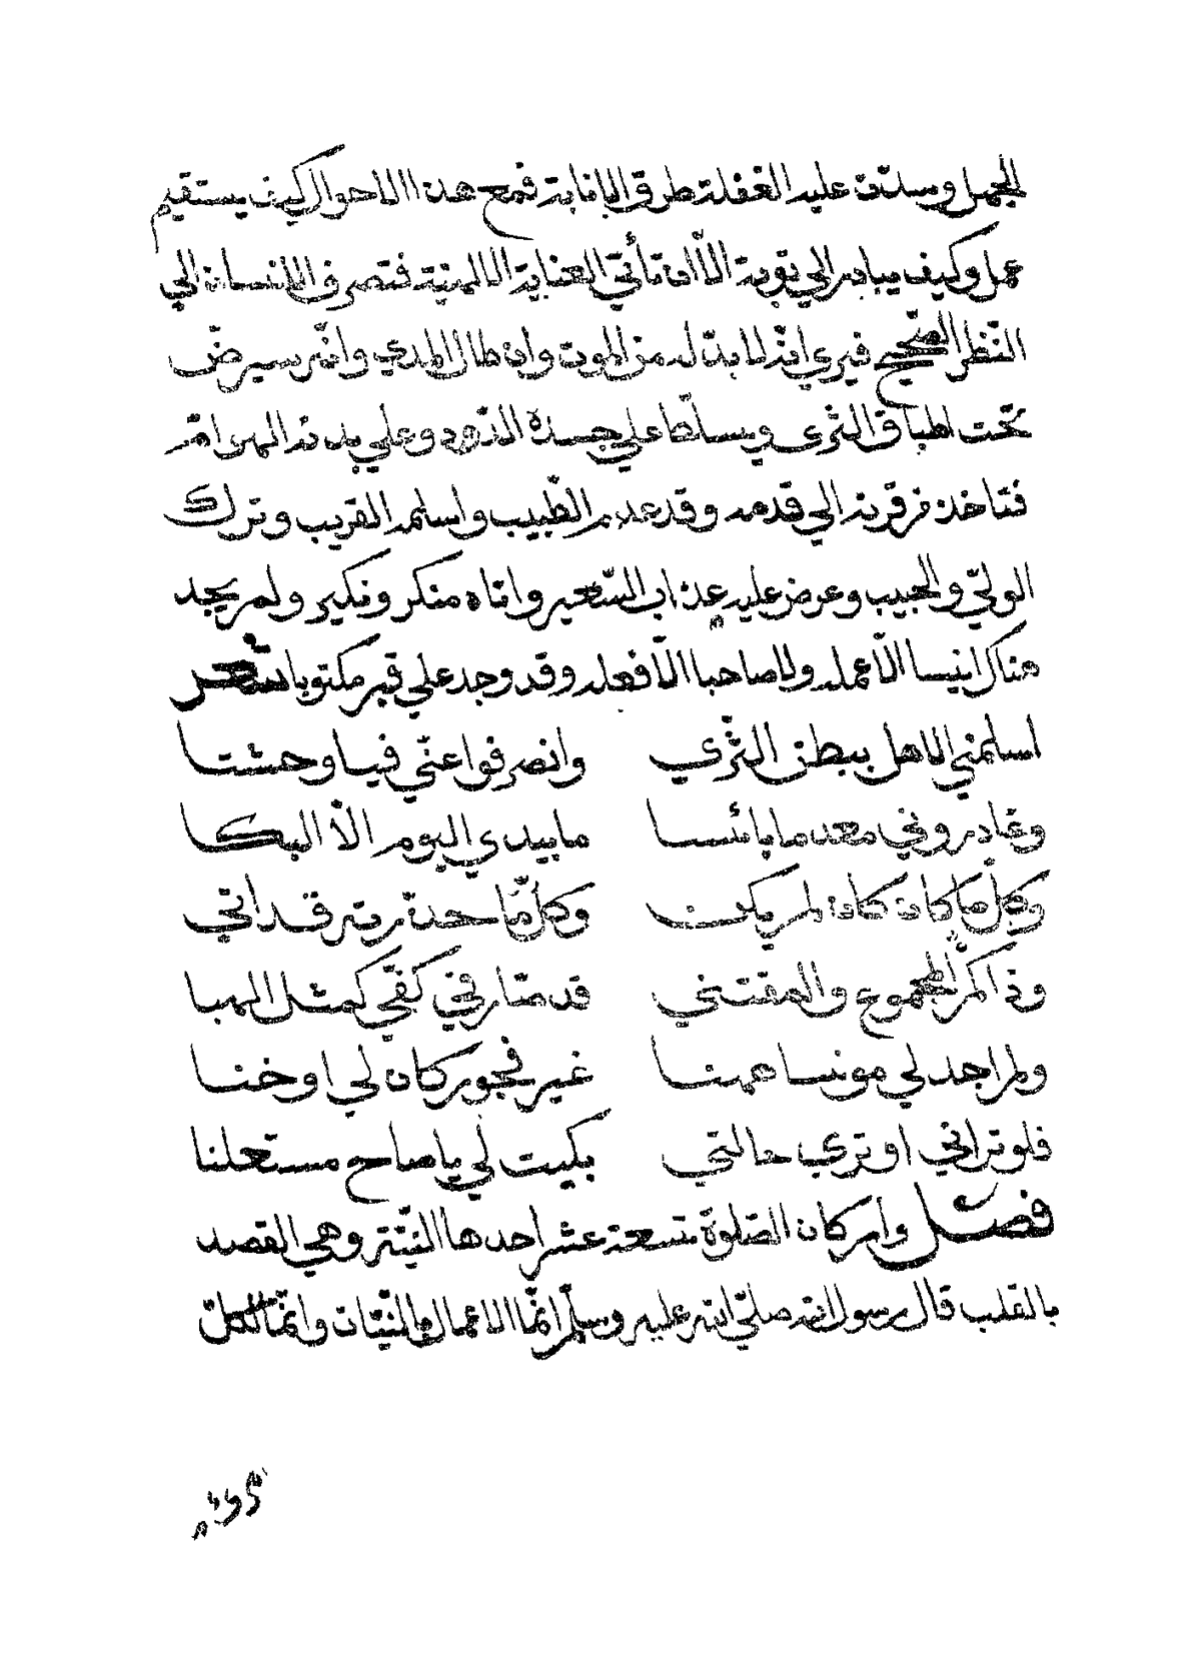 الجهل وسدّت عليه الغفلة طرق الإنابة فمع هذه الاحوال كيف يستقيم
عمل وكيف يبادر الي توبة الّا ان تأتي العناية الالهيّة فتصرف الانسان الي
النّظر الصّحيح فيري انّه لا بدّ له من الموت وان طال المدي وانّه سيرضّ
تحت اطباق الثري ويسلّط علي جسده الدّود وعلي بدنه الهوامّ
فتاخذه من قرنه الي قدمه وقد عدم الطّبيب واسلمه القريب وترك
الوليّ والحبيب وعرض عليه عذاب السّعير واتاه منكر ونكير ولم يجد
هناك انيسا الّا عمله ولا صاحبا الّا فعله وقد وجد علي قبر مكتوبا شعر
اسلمني الاهل ببطن الثّري وانصرفوا عنّي فيا وحشتا
وغادروني معدما بائسا ما بيدي اليوم الّا البكا
وكلّ ما كان كان لم يكن وكلّ ما حذرته قد اتي
وذاكم المجموع والمقتني قد صار في كفّي كمثل الهبا
ولم اجد لي مونسا ههنا غير فجور كان لي او خنا
فلو تراني او تري حالتي بكيت لي يا صاح مستعلنا
فصل واركان الصّلوة تسعة عشر احدها النيّة وهي القصد
بالقلب قال رسول الله صلّي الله عليه وسلّم انّما الاعمال بالنيّات وانّما لكلّ